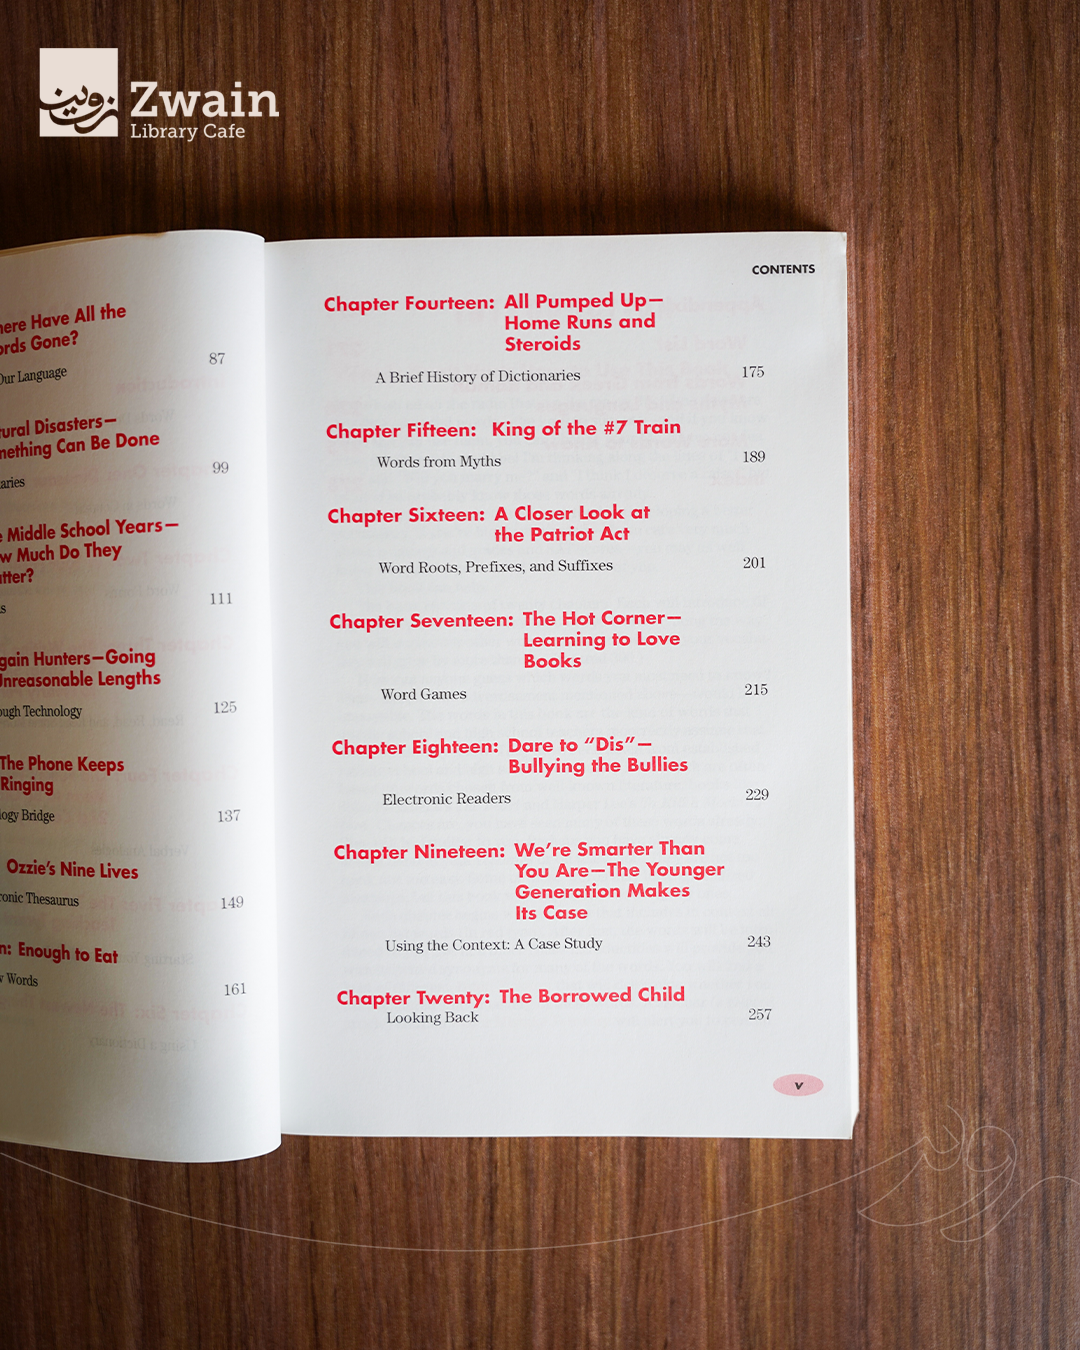 زوين
Zwain
Library Cafe
here Have All the
ords Gone?
Our Language
87
tural Disasters—
mething Can Be Done
aries
99
e Middle School Years—
w Much Do They
tter?
s
111
gain Hunters—Going
Unreasonable Lengths
ough Technology
125
The Phone Keeps
Ringing
logy Bridge
137
Ozzie's Nine Lives
ronic Thesaurus
149
n: Enough to Eat
w Words
161
CONTENTS
Chapter Fourteen: All Pumped Up—
Home Runs and
Steroids
A Brief History of Dictionaries 175
Chapter Fifteen: King of the #7 Train
Words from Myths 189
Chapter Sixteen: A Closer Look at
the Patriot Act
Word Roots, Prefixes, and Suffixes 201
Chapter Seventeen: The Hot Corner—
Learning to Love
Books
Word Games 215
Chapter Eighteen: Dare to "Dis"—
Bullying the Bullies
Electronic Readers 229
Chapter Nineteen: We're Smarter Than
You Are—The Younger
Generation Makes
Its Case
Using the Context: A Case Study 243
Chapter Twenty: The Borrowed Child
Looking Back 257
v